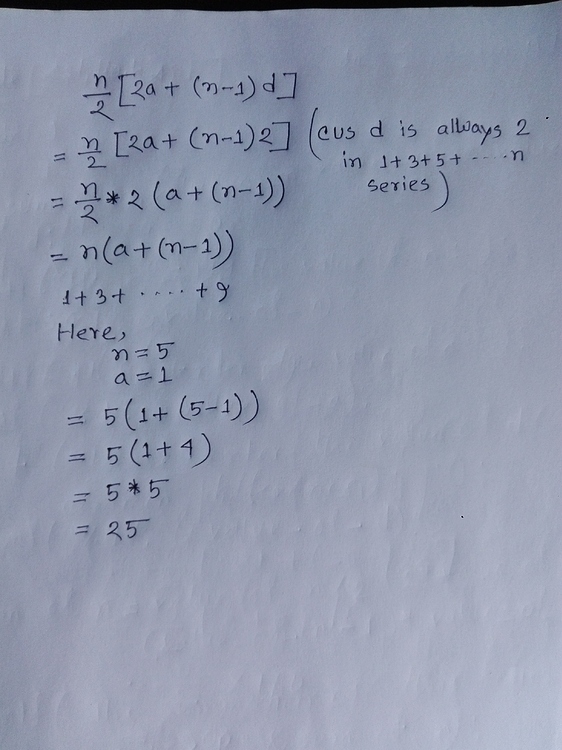 n/2 [2a + (n-1) d]
= n/2 [2a + (n-1) 2] (cus d is allways 2
in 1+3+5+ ····· n
series)
= n/2 * 2 (a + (n-1))
= n(a + (n-1))
1+3+ ····· + 9
Here,
n = 5
a = 1
= 5(1+ (5-1))
= 5(1+4)
= 5*5
= 25